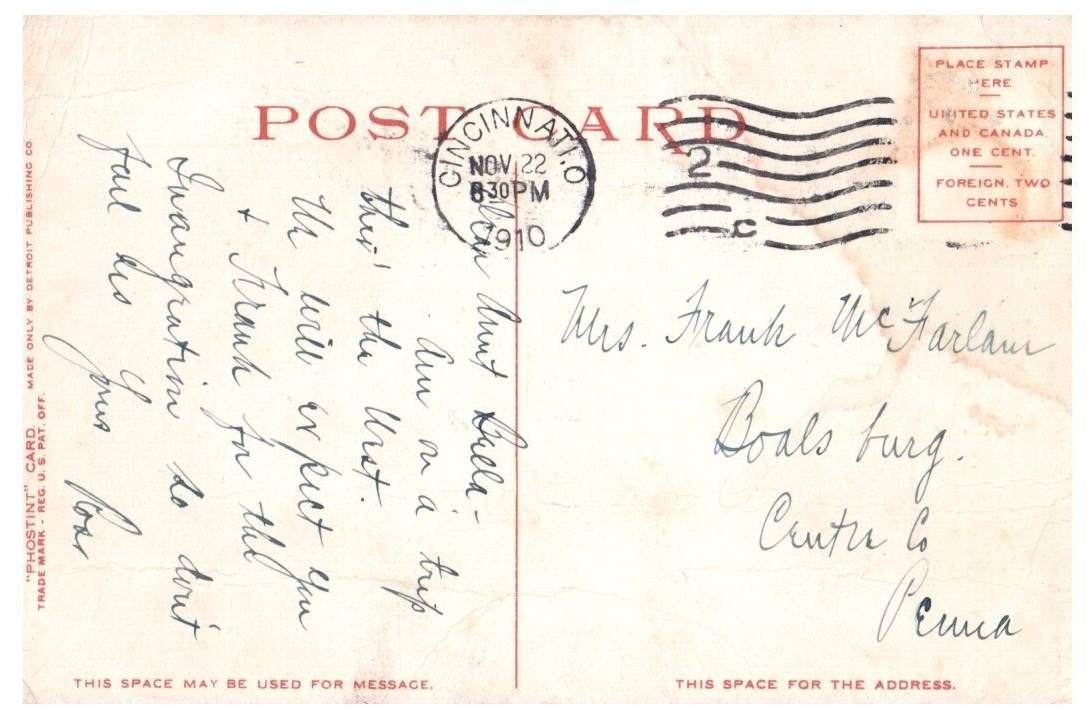 POST CARD
CINCINNATI, O
NOV 22
8 30 PM
1910
2
C
PLACE STAMP
HERE
UNITED STATES
AND CANADA.
ONE CENT.
FOREIGN. TWO
CENTS
Dear Aunt
Am on a trip
thro' the West.
We will expect you
+ Frank for the
Inaugration so don't
fail us
Yours
Mrs. Frank McFarlane
Boalsburg.
Centre Co
Penna
"PHOSTINT" CARD. MADE ONLY BY DETROIT PUBLISHING CO.
TRADE MARK - REG. U. S. PAT. OFF.
THIS SPACE MAY BE USED FOR MESSAGE.
THIS SPACE FOR THE ADDRESS.